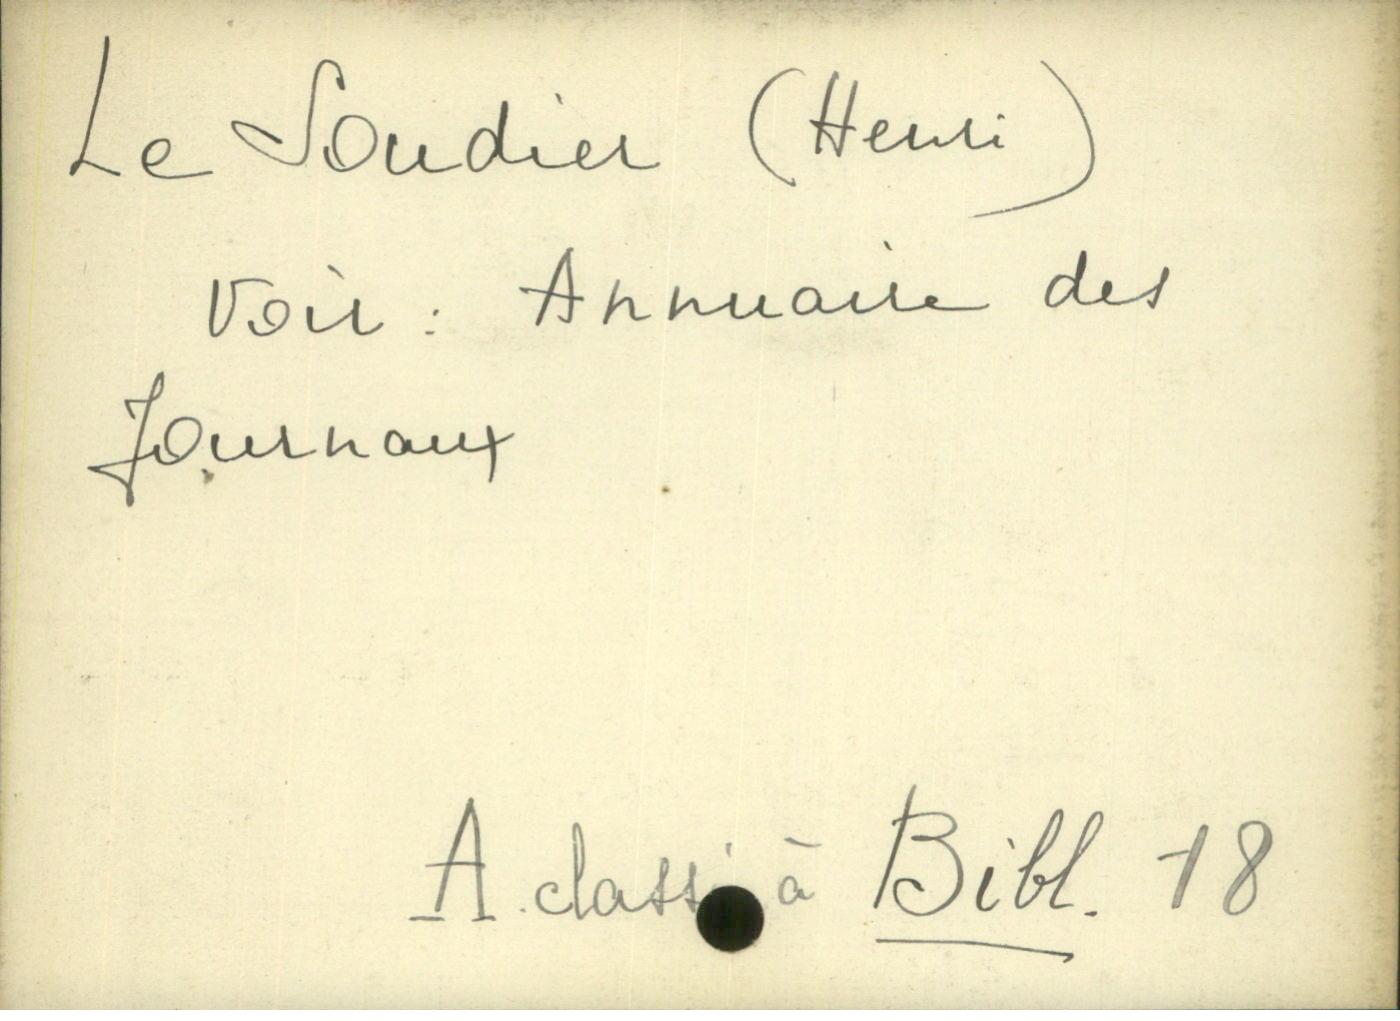 Le Soudier (Henri)
Voir : Annuaire des
Journaux
A à Bibl. 18